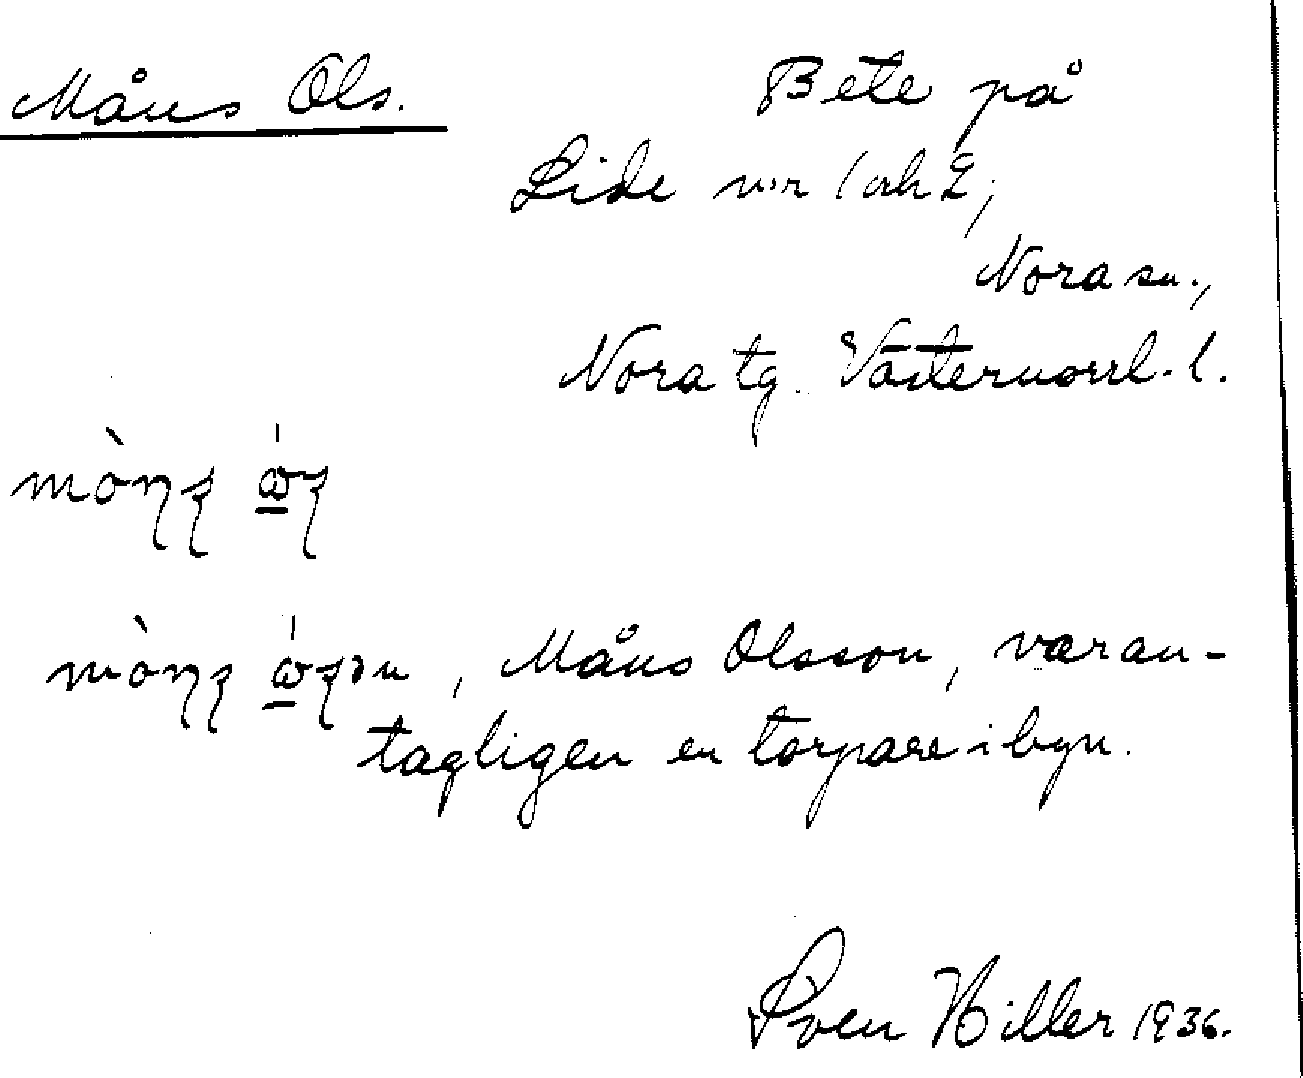 Måns Ols.
Bete på
Lide n:r 1 och 2,
Nora sn.,
Nora tg. Västernorrl. l.
Måns Olsson, varan-
tagligen en torpare i byn.
Sven Hiller 1936.